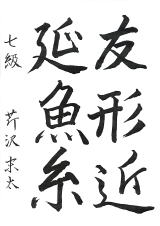 友形近
延魚糸
七級 芹沢末太